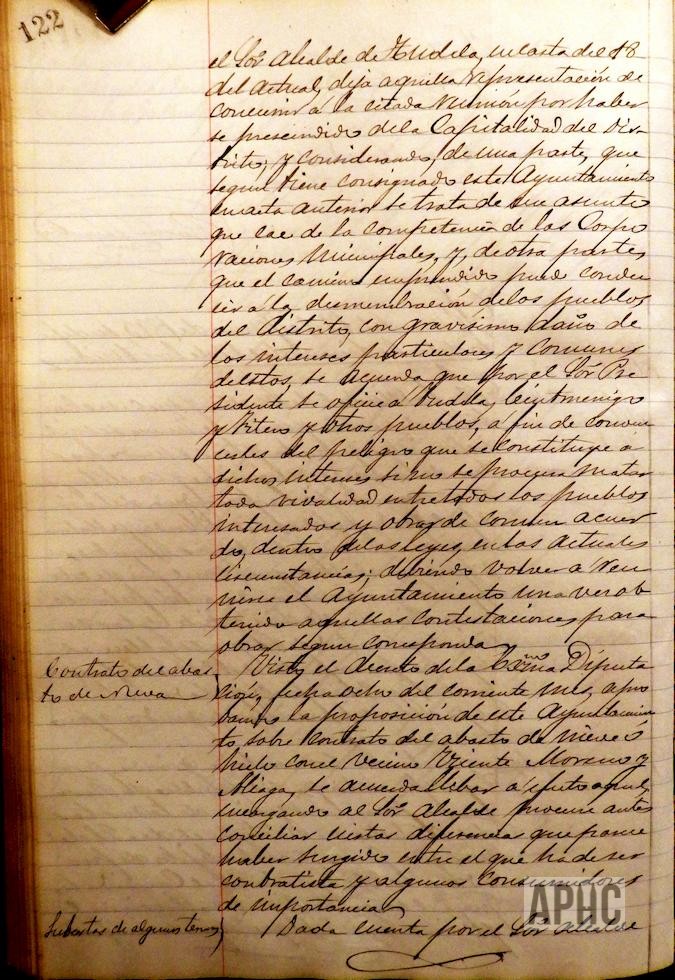 122
el Sor Alcalde de Tudela, en carta del 18
del actual, dija aquella representación de
concurrir á la citada reunión por haber
se prescindido de la Capitalidad del Dis-
trito; y considerando, de una parte, que
segun tiene consignado este Ayuntamiento
en acta anterior se trata de un asunto
que cae de la competencia de las Corpo
raciones Municipales, y, de otra parte,
que el camino emprendido puede condu
cir á la desmembración de los pueblos
del Distrito, con gravisimo daño de
los intereses particulares y comunes
de estos, se acuerda que por el Sor Pre
sidente se oficie á Tudela, Cintruenigo
y Fitero y otros pueblos, á fin de conven
cerles del peligro que se constituye á
dichos intereses si no se procura matar
toda rivalidad entre todos los pueblos
interesados y obrar de comun acuer
do, dentro de las leyes, en las actuales
circunstancias; debiendo volver a reu
nirse el Ayuntamiento una vez ob
tenido aquellas contestaciones para
obrar segun corresponda
Contrato del abas-
to de nieve
Visto el decreto de la Exma Diputa
ción, fecha ocho del corriente mes, apro
bando la proposición de este Ayuntamien
to sobre contrato del abasto de nieve ó
hielo con el vecino Vicente Moreno y
Aliaga, se acuerda llebar a efecto aquel,
encargando al Sor Alcalde procure antes
conciliar ciertas diferencias que parece
haber surgido entre el que ha de ser
contratista y algunos consumidores
de importancia
Subastas de algunos terrenos
Dada cuenta por el Sor Alcalde
APHC